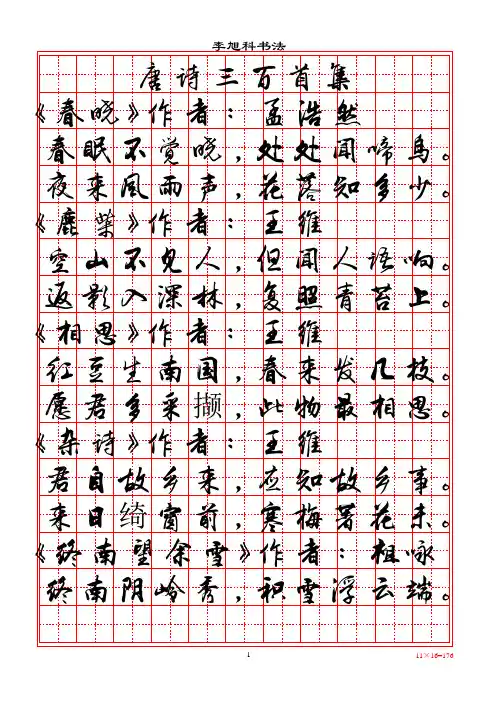 李旭科书法
唐诗三百首集
《春晓》作者：孟浩然
春眠不觉晓，处处闻啼鸟。
夜来风雨声，花落知多少。
《鹿柴》作者：王维
空山不见人，但闻人语响。
返影入深林，复照青苔上。
《相思》作者：王维
红豆生南国，春来发几枝。
愿君多采撷，此物最相思。
《杂诗》作者：王维
君自故乡来，应知故乡事。
来日绮窗前，寒梅著花未。
《终南望余雪》作者：祖咏
终南阴岭秀，积雪浮云端。
1
11×16=176